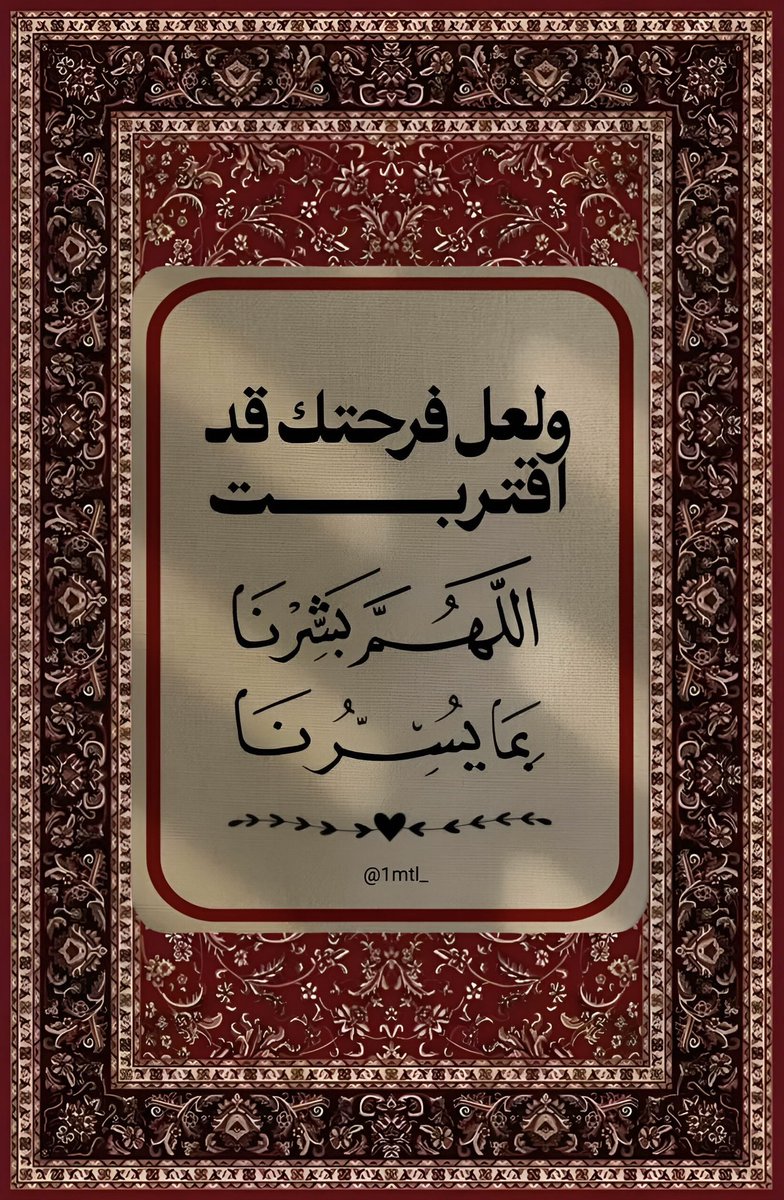 ولعل فرحتك قد
اقتربــــــت
اللَّهُمَّ بَشِّرْنَا
بِمَا يُسِرُّنَا
@1mtl_